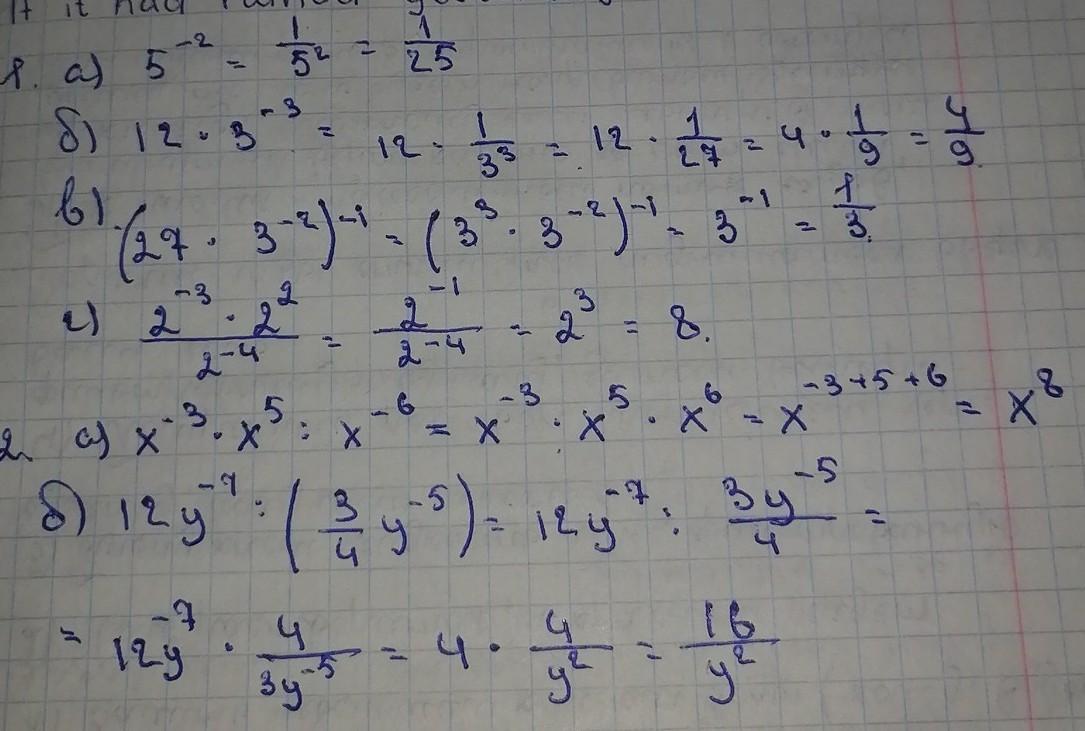 If it had
1. а) 5⁻² = 1/5² = 1/25
б) 12 · 3⁻³ = 12 · 1/3³ = 12 · 1/27 = 4 · 1/9 = 4/9.
в) (27 · 3⁻²)⁻¹ = (3³ · 3⁻²)⁻¹ = 3⁻¹ = 1/3.
г) (2⁻³ · 2²)/2⁻⁴ = 2⁻¹/2⁻⁴ = 2³ = 8.
2. а) x⁻³ · x⁵ : x⁻⁶ = x⁻³ · x⁵ · x⁶ = x⁻³⁺⁵⁺⁶ = x⁸
б) 12y⁻⁷ : (3/4 y⁻⁵) = 12y⁻⁷ : 3y⁻⁵/4 =
= 12y⁻⁷ · 4/3y⁻⁵ = 4 · 4/y² = 16/y²